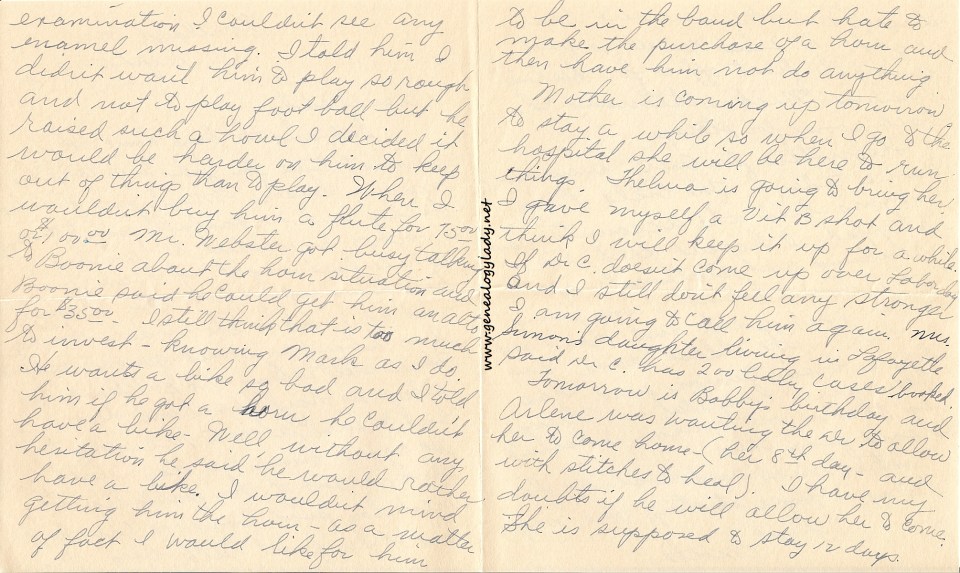 examination I couldn't see any
enamel missing. I told him I
didn't want him to play so rough
and not to play foot ball but he
raised such a howl I decided it
would be harder on him to keep
out of things than to play. When I
wouldn't buy him a flute for 75⁰⁰
or 00⁰⁰ Mr. Webster got busy talking
to Boonie about the horn situation and
Boonie said he could get him an alto
for $35⁰⁰ - I still think that is too much
to invest - knowing Mark as I do.
He wants a bike so bad and I told
him if he got a horn he couldn't
have a bike - Well, without any
hesitation he said he would rather
have a bike. I wouldn't mind
getting him the horn - as a matter
of fact I would like for him
to be in the band but hate to
make the purchase of a horn and
then have him not do anything
Mother is coming up tomorrow
to stay a while so when I go to the
hospital she will be here to run
things. Thelma is going to bring her.
I gave myself a Vit B shot and
think I will keep it up for a while.
If Dr C. doesn't come up over Laborday
and I still don't feel any stronger
I am going to call him again. Mrs.
Simons daughter living in Lafayette
said Dr C. has 200 baby cases booked.
Tomorrow is Bobby's birthday and
Arlene was wanting the Dr. to allow
her to come home - (her 8th day - and
with stitches to heal). I have my
doubts if he will allow her to come.
She is supposed to stay 12 days.
www.genealogylady.net